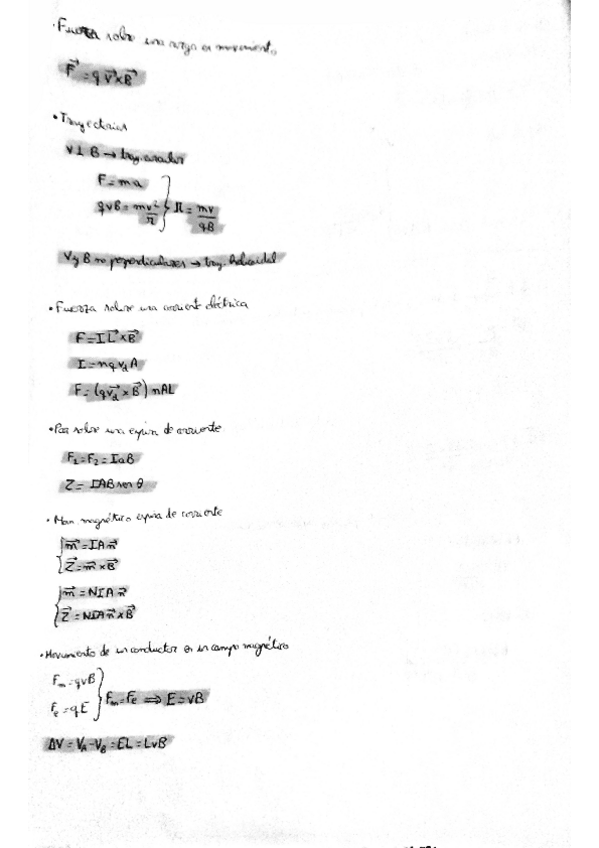 · Fuerza sobre una carga en movimiento
F⃗ = q v⃗ x B⃗
• Trayectorias
V ⊥ B → tray. circular
F = ma
qvB = mv²/r } R = mv/qB
V y B no perpendiculares → tray. helicoidal
• Fuerza sobre una corriente eléctrica
F = I L⃗ x B⃗
I = nqv_d A
F = (q v⃗_d x B⃗) nAL
• Par sobre una espira de corriente
F₁ = F₂ = IaB
Z = IAB sen θ
· Mom. magnético espira de corriente
{ m⃗ = IA n⃗
Z⃗ = m⃗ x B⃗
{ m⃗ = NIA n⃗
Z⃗ = NIA n⃗ x B⃗
• Movimiento de un conductor en un campo magnético
F_m = qvB
F_e = qE } F_m = F_e ⟹ E = vB
ΔV = V_A - V_B = EL = LvB